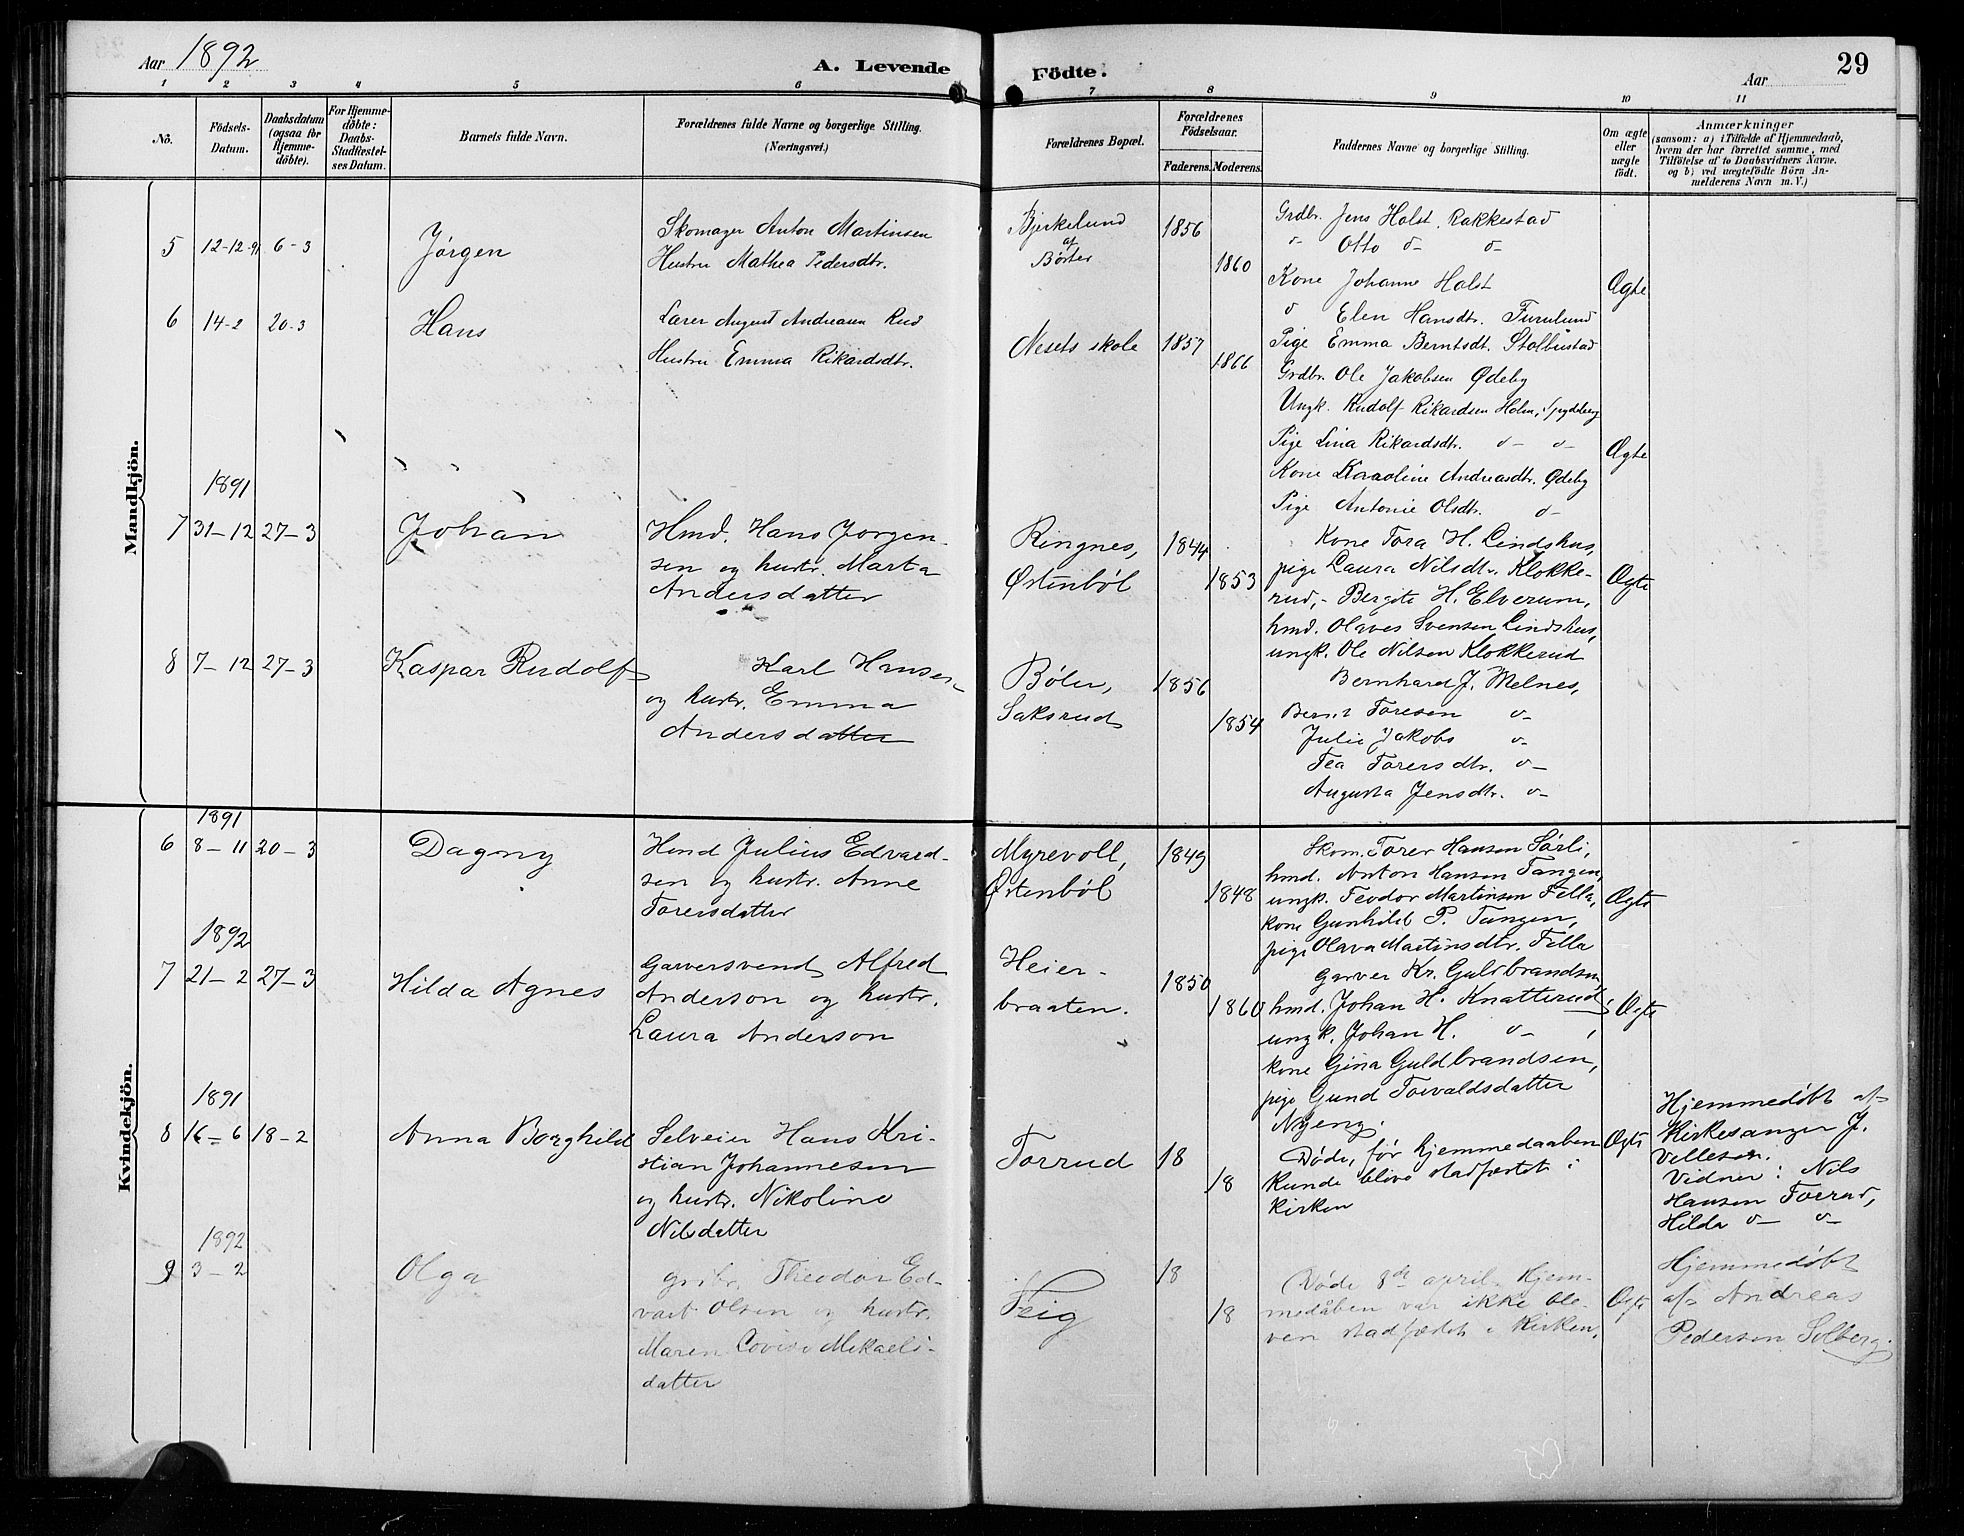 Aar 1892
A. Levende Födte.
Aar
29
1 2 3 4 5 6 7 8 9 10 11
No.
Födsels-Datum.
Daabsdatum (ogsaa for Hjemme-döbte).
For Hjemme-döbte: Daabs-Stadfæstel-ses Datum.
Barnets fulde Navn.
Forældrenes fulde Navne og borgerlige Stilling.
(Næringsvei.)
Forældrenes Bopæl.
Forældrenes Födselsaar.
Faderens. Moderens.
Faddernes Navne og borgerlige Stilling.
Om ægte eller uægte født.
Anmærkninger
(saasom: a) i Tilfælde af Hjemmedaab,
hvem der har forrettet samme, med
Tilföielse af to Daabsvidners Navne.
og b) ved uægtefödte Börn An-
melderens Navn m. V.)
Mandkjön.
5 12-12-91 6-3
Jørgen
Skomager Anton Martinsen
Hustru Mathea Pedersdtr.
Bjerkelund
af
Børter
1856
1860
Grdbr. Jens Holst, Rakkestad
o- Otto o- o-
Kone Johanne Holst
o Elen Hansdtr. Furulund
Pige Emma Berntsdt. Stolbustad
Ægte
6 14-2 20-3
Hans
Lærer August Andreasen Rud
Hustru Emma Rikardsdtr.
Nesets skole
1857
1866
Grdbr. Ole Jakobsen Ødeby
Ungk. Rudolf Rikardsen Holm, Spydeberg
Pige Lina Rikardsdtr. o- o-
Kone Karoline Andreasdtr. Ødeby
Pige Antonie Olsdtr. o-
Ægte
1891
7 31-12 27-3
Johan
Hmd. Hans Jørgen-
sen og hustr. Marta
Andersdatter
Ringnes,
Østenbøl
1844
1853
Kone Tora H. Lindshus,
pige Laura Nilsdtr. Klokke-
rud, - Bergite H. Elverum,
hmd. Olaves Svensen Lindshus,
ungk. Ole Nilsen Klokkerud
Ægte
8 7-12 27-3
Kaspar Rudolf
Karl Hansen
og hustr. Emma
Andersdatter
Bøler,
Saksrud
1856
1854
Bernhard J. Melnes,
Bernt Toresen o-
Julie Jakobs o-
Tea Torersdtr. o-
Augusta Jensdtr. o-
Kvindekjön.
1891
6 8-11 20-3
Dagny
Hmd Julius Edvard-
sen og hustr. Anne
Torersdatter
Myrevoll,
Østenbøl
1849
1848
Skom. Torer Hansen Sørli,
hmd. Anton Hansen Tangen,
ungk. Teodor Martinsen Fella,
kone Gunhild P. Tangen,
pige Olava Martinsdtr. Fella
Ægte
1892
7 21-2 27-3
Hilda Agnes
Garversvend Alfred
Anderson og hustr.
Laura Anderson
Heier-
braaten.
1850
1860
Garver Kr. Guldbrandsen,
hmd. Johan H. Knatterud,
ungk. Johan H. o- ,
kone Gina Guldbrandsen,
pige Gund Torvaldsdatter
Nyeng.
Ægte
1891
8 16-6 18-2
Anna Borghild
Selveier Hans Kri-
stian Johannesen
og hustr. Nikoline
Nilsdatter
Torrud
18
18
Døde, før hjemmedaaben
kunde blive stadfæstet i
kirken
Ægte
Hjemmedøbt af
Kirkesanger J.
Vellesen.
Vidner: Nils
Hansen Torrud,
Hilda o- o-
1892
9 3-2
Olga
grdbr. Theodor Ed-
vart Olsen og hustr.
Maren Lovise Mikaels-
datter
Feig
18
18
Døde 8de april. Hjem-
medåben var ikke ble-
ven stadfæstet i Kirken,
Ægte
Hjemmedøbt
af Andreas
Pederson Solberg.